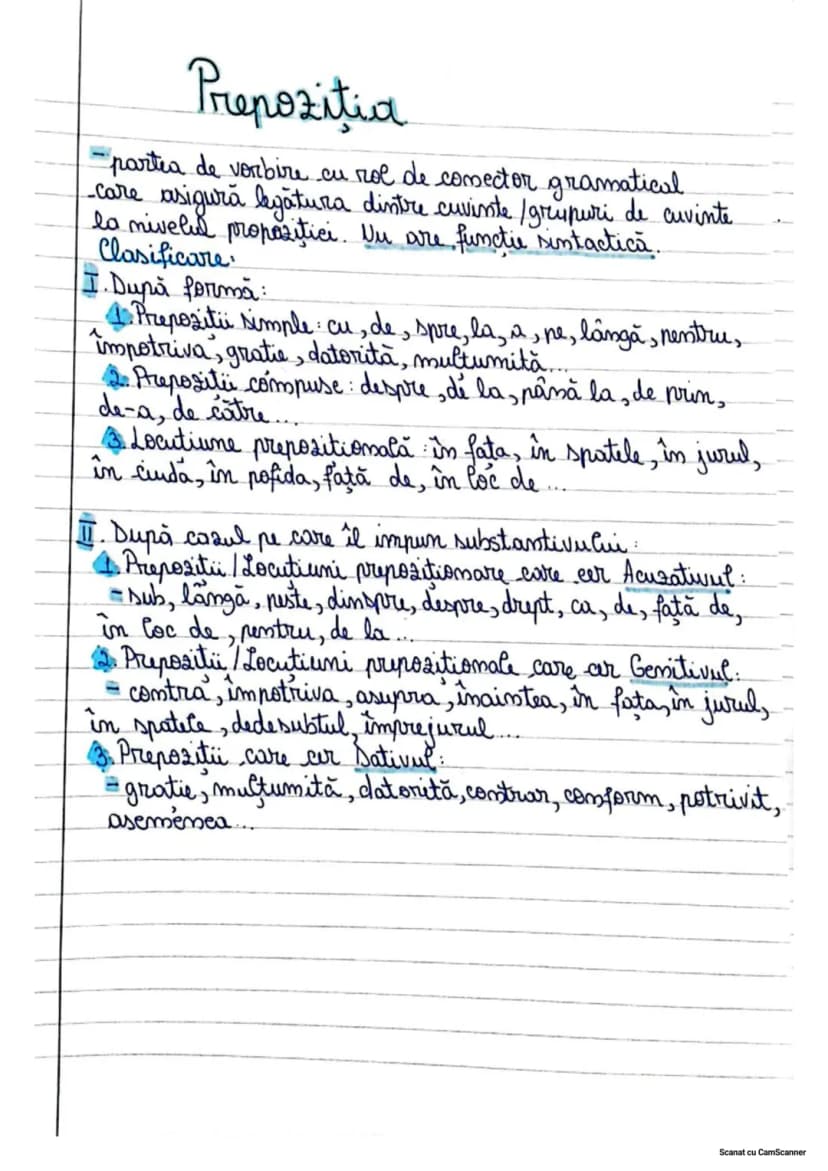 Prepoziția
- partea de vorbire cu rol de conector gramatical
care asigură legătura dintre cuvinte /grupuri de cuvinte
la nivelul propoziției. Nu are funcție sintactică.
Clasificare:
I. După formă:
1. Prepoziții simple: cu, de, spre, la, a, pe, lângă, pentru,
împotriva, grație, datorită, mulțumită...
2. Prepoziții compuse: despre, de la, până la, de prin,
de-a, de către...
3. Locuțiune prepozițională: în fața, în spatele, în jurul,
în ciuda, în pofida, față de, în loc de ...
II. După cazul pe care îl impun substantivului:
1. Prepoziții / Locuțiuni prepoziționare care cer Acuzativul:
- sub, lângă, peste, dinspre, despre, drept, ca, de, față de,
în loc de, pentru, de la ...
2. Prepoziții / Locuțiuni prepoziționale care cer Genitivul:
- contra, împotriva, asupra, înaintea, în fața, în jurul,
în spatele, dedesubtul, împrejurul...
3. Prepoziții care cer Dativul:
- grație, mulțumită, datorită, contrar, conform, potrivit,
asemenea...
Scanat cu CamScanner